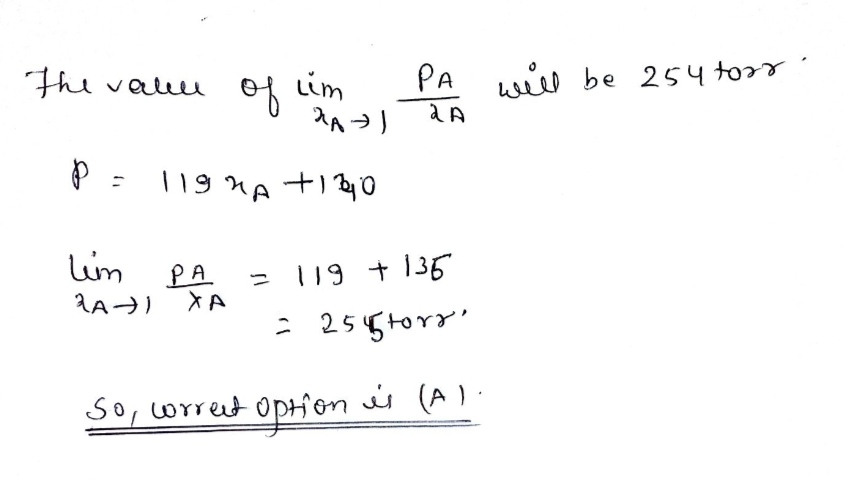 The value of lim xA→1 PA/xA will be 254 torr.
P = 119 xA + 1
lim xA→1 PA/xA = 119 + 135
= torr.
So, correct option is (A).